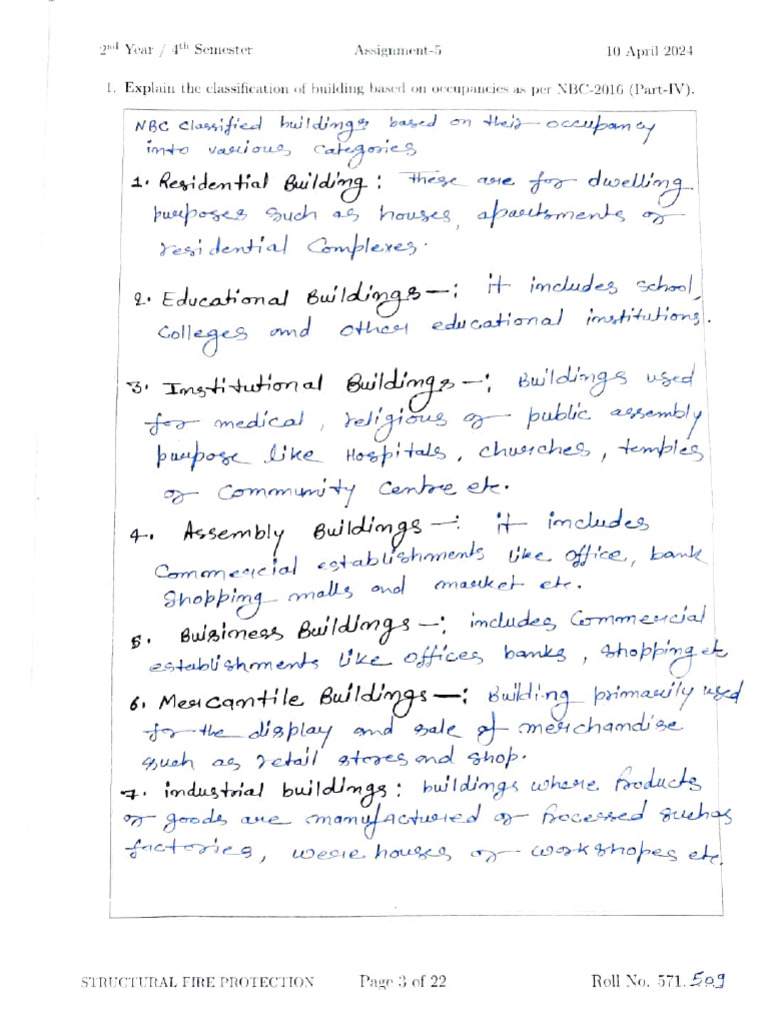 2nd Year / 4th Semester Assignment-5 10 April 2024
1. Explain the classification of building based on occupancies as per NBC-2016 (Part-IV).
NBC classified buildings based on their occupancy
into various categories
1. Residential Building : These are for dwelling
purposes such as houses, apartments or
residential Complexes.
2. Educational Buildings —: it includes school,
Colleges and other educational institutions.
3. Institutional Buildings —: Buildings used
for medical, religious or public assembly
purpose like Hospitals, churches, temples
or Community Centre etc.
4. Assembly Buildings —: it includes
Commercial establishments like office, bank
Shopping malls and market etc.
5. Buisiness Buildings —: includes Commercial
establishments like offices banks, shopping etc
6. Mercantile Buildings —: Building primarily used
for the display and sale of merchandise
such as retail stores and shop.
7. industrial buildings : buildings where Products
or goods are manufactured or Processed such as
factories, were houses or workshopes etc.
STRUCTURAL FIRE PROTECTION Page 3 of 22 Roll No. 571.509